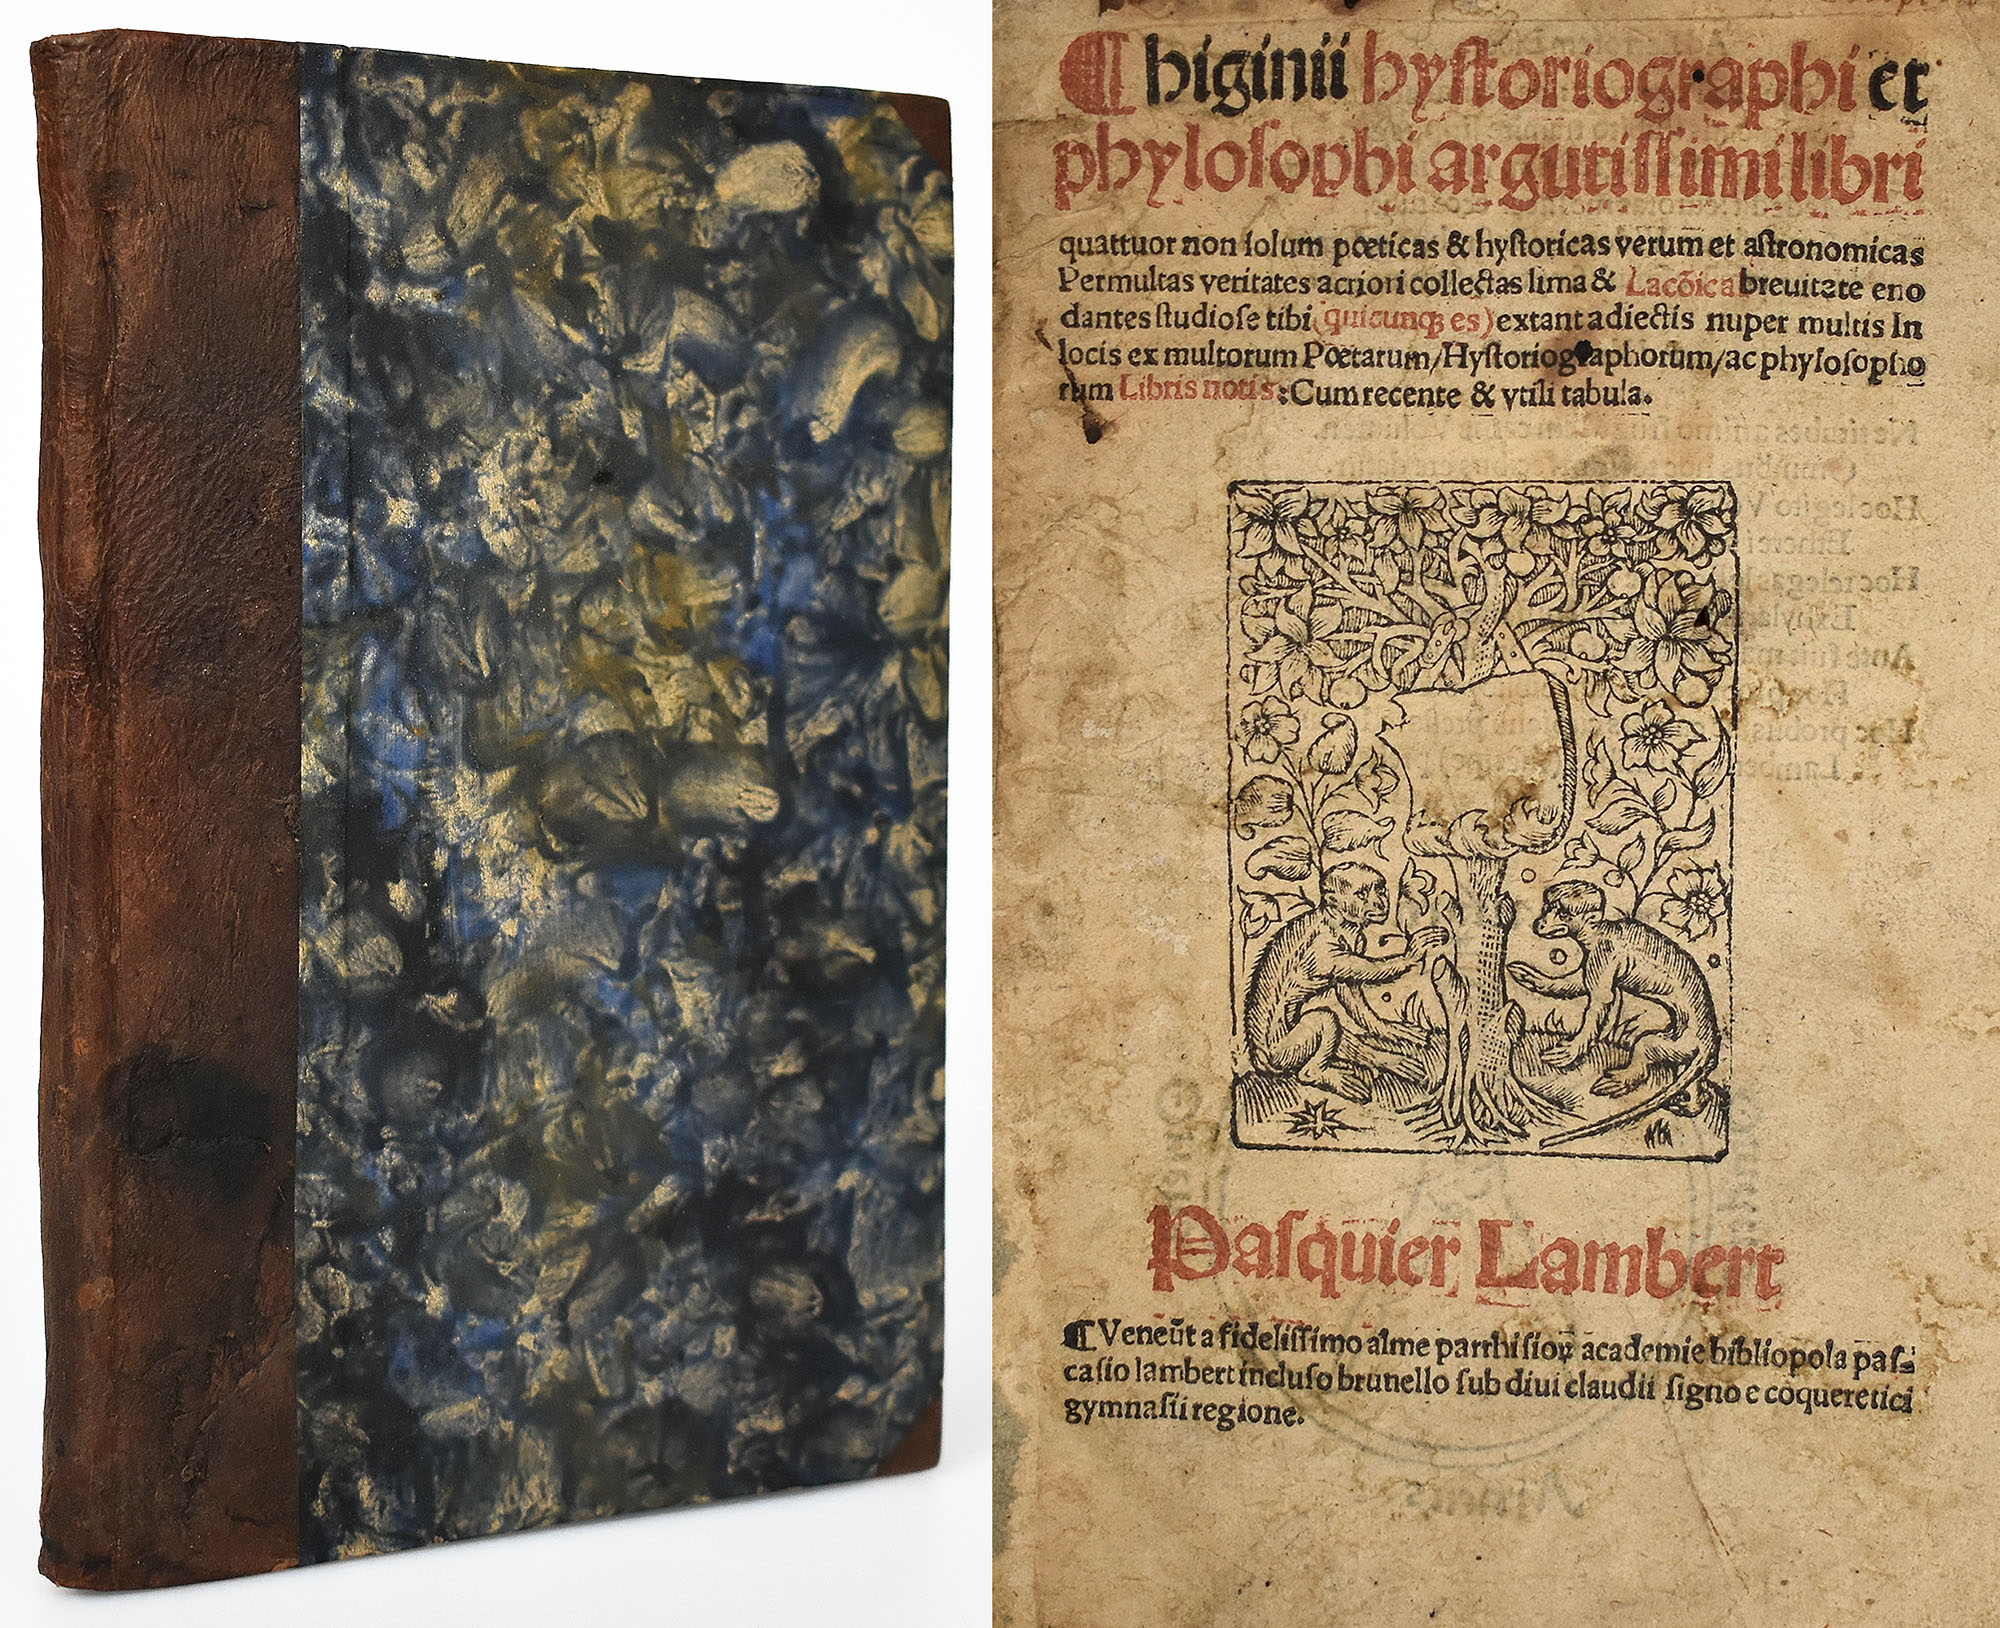 ¶ higinii hyſtoriographi et
phyloſophi argutiſſimi libri
quattuor non ſolum pœticas & hyſtoricas verum et aſtronomicas
Permultas veritates acriori collectas lima & Lacõica breuitate eno
dantes ſtudioſe tibi (quicunqꝫ es) extant adiectis nuper multis In
locis ex multorum Pœtarum/Hyſtoriographorum/ac phyloſopho
rum Libris notis: Cum recente & vtili tabula.
Paſquier Lambert
¶ Veneũt a fideliſſimo alme parrhiſioꝝ academie bibliopola paſ-
caſio lambert incluſo brunello ſub diui claudii ſigno e coqueretici
gymnaſii regione.